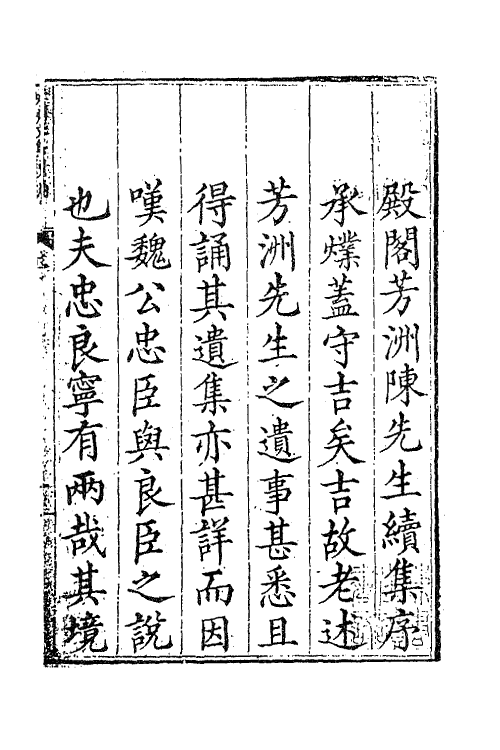 殿閣芳洲陳先生續集序
承爃蓋守吉矣吉故老述
芳洲先生之遺事甚悉且
得誦其遺集亦甚詳而因
嘆魏公忠臣與良臣之說
也夫忠良寧有兩哉其境